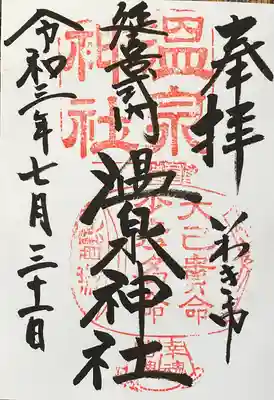 奉拝
いわき市
延喜式内
温泉神社
令和三年七月三十一日
温泉
神社
大己貴命